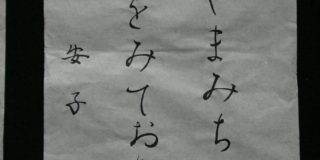 まみち
をみてお
安子